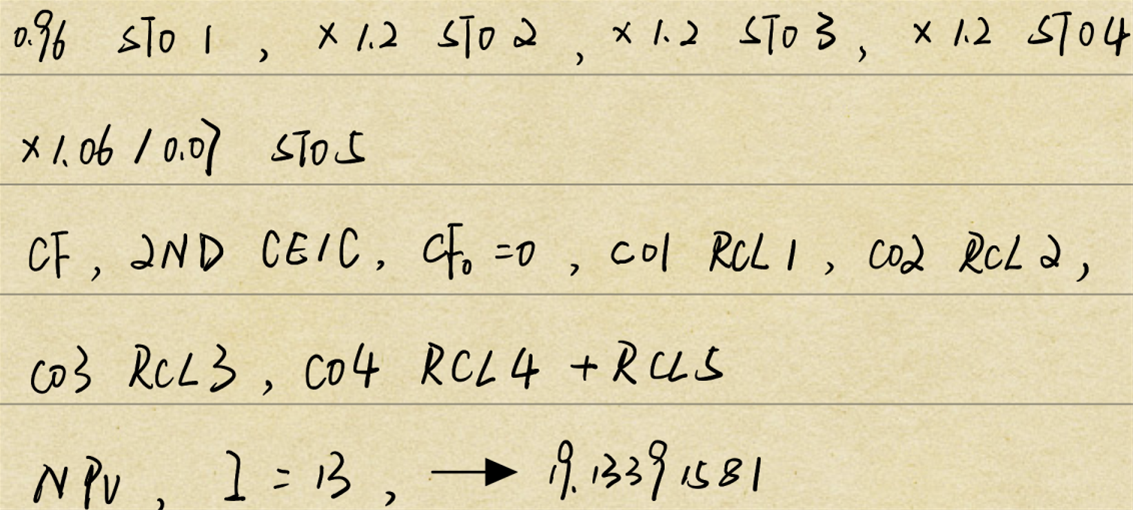 0.96 STO 1 , × 1.2 STO 2 , × 1.2 STO 3 , × 1.2 STO 4
× 1.06 / 0.07 STO 5
CF , 2ND CE/C , CF₀ = 0 , C01 RCL 1 , C02 RCL 2 ,
C03 RCL 3 , C04 RCL 4 + RCL 5
NPV , I = 13 , → 19.1339 1581